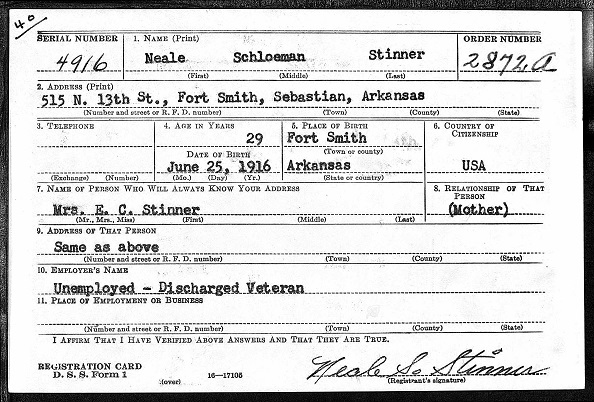 40
SERIAL NUMBER
1. NAME (Print)
ORDER NUMBER
4916
Neale Schloeman Stinner
2872a
(First) (Middle) (Last)
2. ADDRESS (Print)
515 N. 13th St., Fort Smith, Sebastian, Arkansas
(Number and street or R. F. D. number) (Town) (County) (State)
3. TELEPHONE
4. AGE IN YEARS
5. PLACE OF BIRTH
6. COUNTRY OF CITIZENSHIP
29
Fort Smith
DATE OF BIRTH
(Town or county)
June 25, 1916
Arkansas
USA
(Exchange) (Number)
(Mo.) (Day) (Yr.)
(State or country)
7. NAME OF PERSON WHO WILL ALWAYS KNOW YOUR ADDRESS
8. RELATIONSHIP OF THAT PERSON
Mrs. E. C. Stinner
(Mother)
(Mr., Mrs., Miss) (First) (Middle) (Last)
9. ADDRESS OF THAT PERSON
Same as above
(Number and street or R. F. D. number) (Town) (County) (State)
10. EMPLOYER'S NAME
Unemployed - Discharged Veteran
11. PLACE OF EMPLOYMENT OR BUSINESS
(Number and street or R. F. D. number) (Town) (County) (State)
I AFFIRM THAT I HAVE VERIFIED ABOVE ANSWERS AND THAT THEY ARE TRUE.
REGISTRATION CARD
D. S. S. Form 1
(over)
16—17105
Neale S. Stinner
(Registrant's signature)